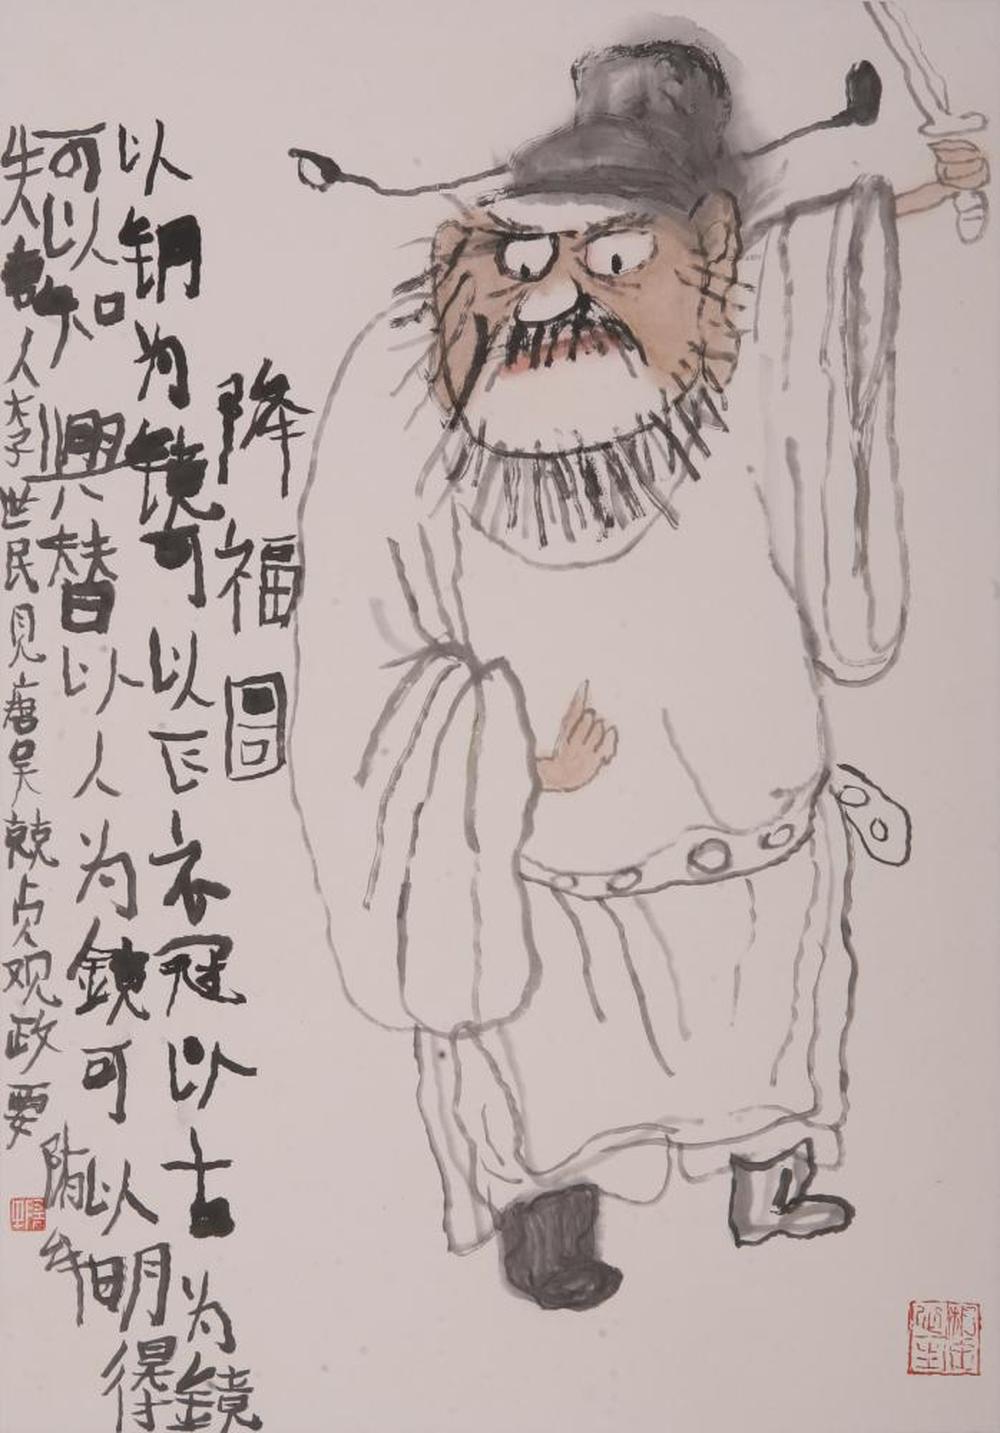 降福圖
以铜为镜可以正衣冠以古为鏡
可以知興替以人为鏡可以明得
失唐人李世民見唐吴兢贞观政要